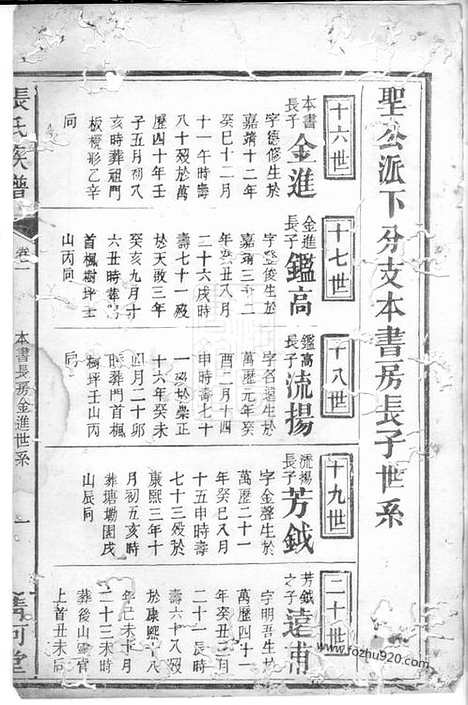 聖公派下分支本書房長子世系
十六世
本書長子金進
字德修生於
嘉靖十二年
癸巳十二月
十一午時壽
八十歿於萬
歷四十年壬
子五月初八
亥時葬祖門
板樓形乙辛
同
十七世
金進長子鑑高
俊生於
嘉靖三十二
年癸丑八月
二十六戌時
壽七十一歿
於天啟三年
癸亥九月十
六丑時葬
首楓樹坪壬
山丙同
十八世
鑑高長子流揚
字名遠生於
萬歷元年癸
酉二月十四
申時壽七十
一歿於崇正
十六年癸未
四月二十卯
時葬門首楓
樹坪壬山丙
同
十九世
流揚長子芳鉞
字金聲生於
萬歷二十一
年癸巳八月
十五申時壽
七十三歿於
康熙三年十
月初五亥時
葬塘坳園戌
山辰同
二十世
芳鉞之子遠甫
字明吾生於
萬歷四十一
年癸丑三月
二十一辰時
壽六十八歿
於康熙十八
年己未十月
二十三未時
葬後山靈官
上首丑未同
張氏族譜
卷二
本書長房金進世系
一
清河堂
www.fozhu920.com